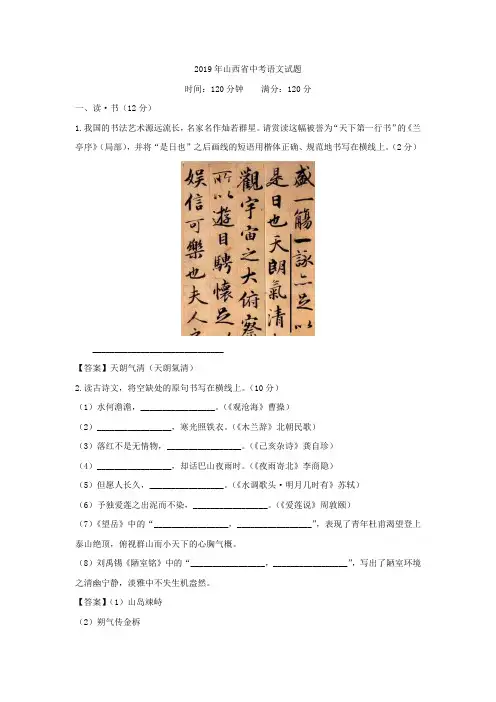 2019年山西省中考语文试题
时间:120分钟 满分:120分
一、读·书(12分)
1.我国的书法艺术源远流长,名家名作灿若群星。请赏读这幅被誉为“天下第一行书”的《兰
亭序》(局部),并将“是日也”之后画线的短语用楷体正确、规范地书写在横线上。(2分)
盛一觴一詠亦足以
是日也天朗氣清
觀宇宙之大俯察
所以遊目騁懷足
娛信可樂也夫人之
______________________________
【答案】天朗气清(天朗氣清)
2.读古诗文,将空缺处的原句书写在横线上。(10分)
(1)水何澹澹,_________________。(《观沧海》曹操)
(2)_________________,寒光照铁衣。(《木兰辞》北朝民歌)
(3)落红不是无情物,_________________。(《己亥杂诗》龚自珍)
(4)_________________,却话巴山夜雨时。(《夜雨寄北》李商隐)
(5)但愿人长久,_________________。(《水调歌头·明月几时有》苏轼)
(6)予独爱莲之出泥而不染,_________________。(《爱莲说》周敦颐)
(7)《望岳》中的“_________________,_________________”,表现了青年杜甫渴望登上
泰山绝顶,俯视群山而小天下的心胸气概。
(8)刘禹锡《陋室铭》中的“_________________,_________________”,写出了陋室环境
之清幽宁静,淡雅中不失生机盎然。
【答案】(1)山岛竦峙
(2)朔气传金柝